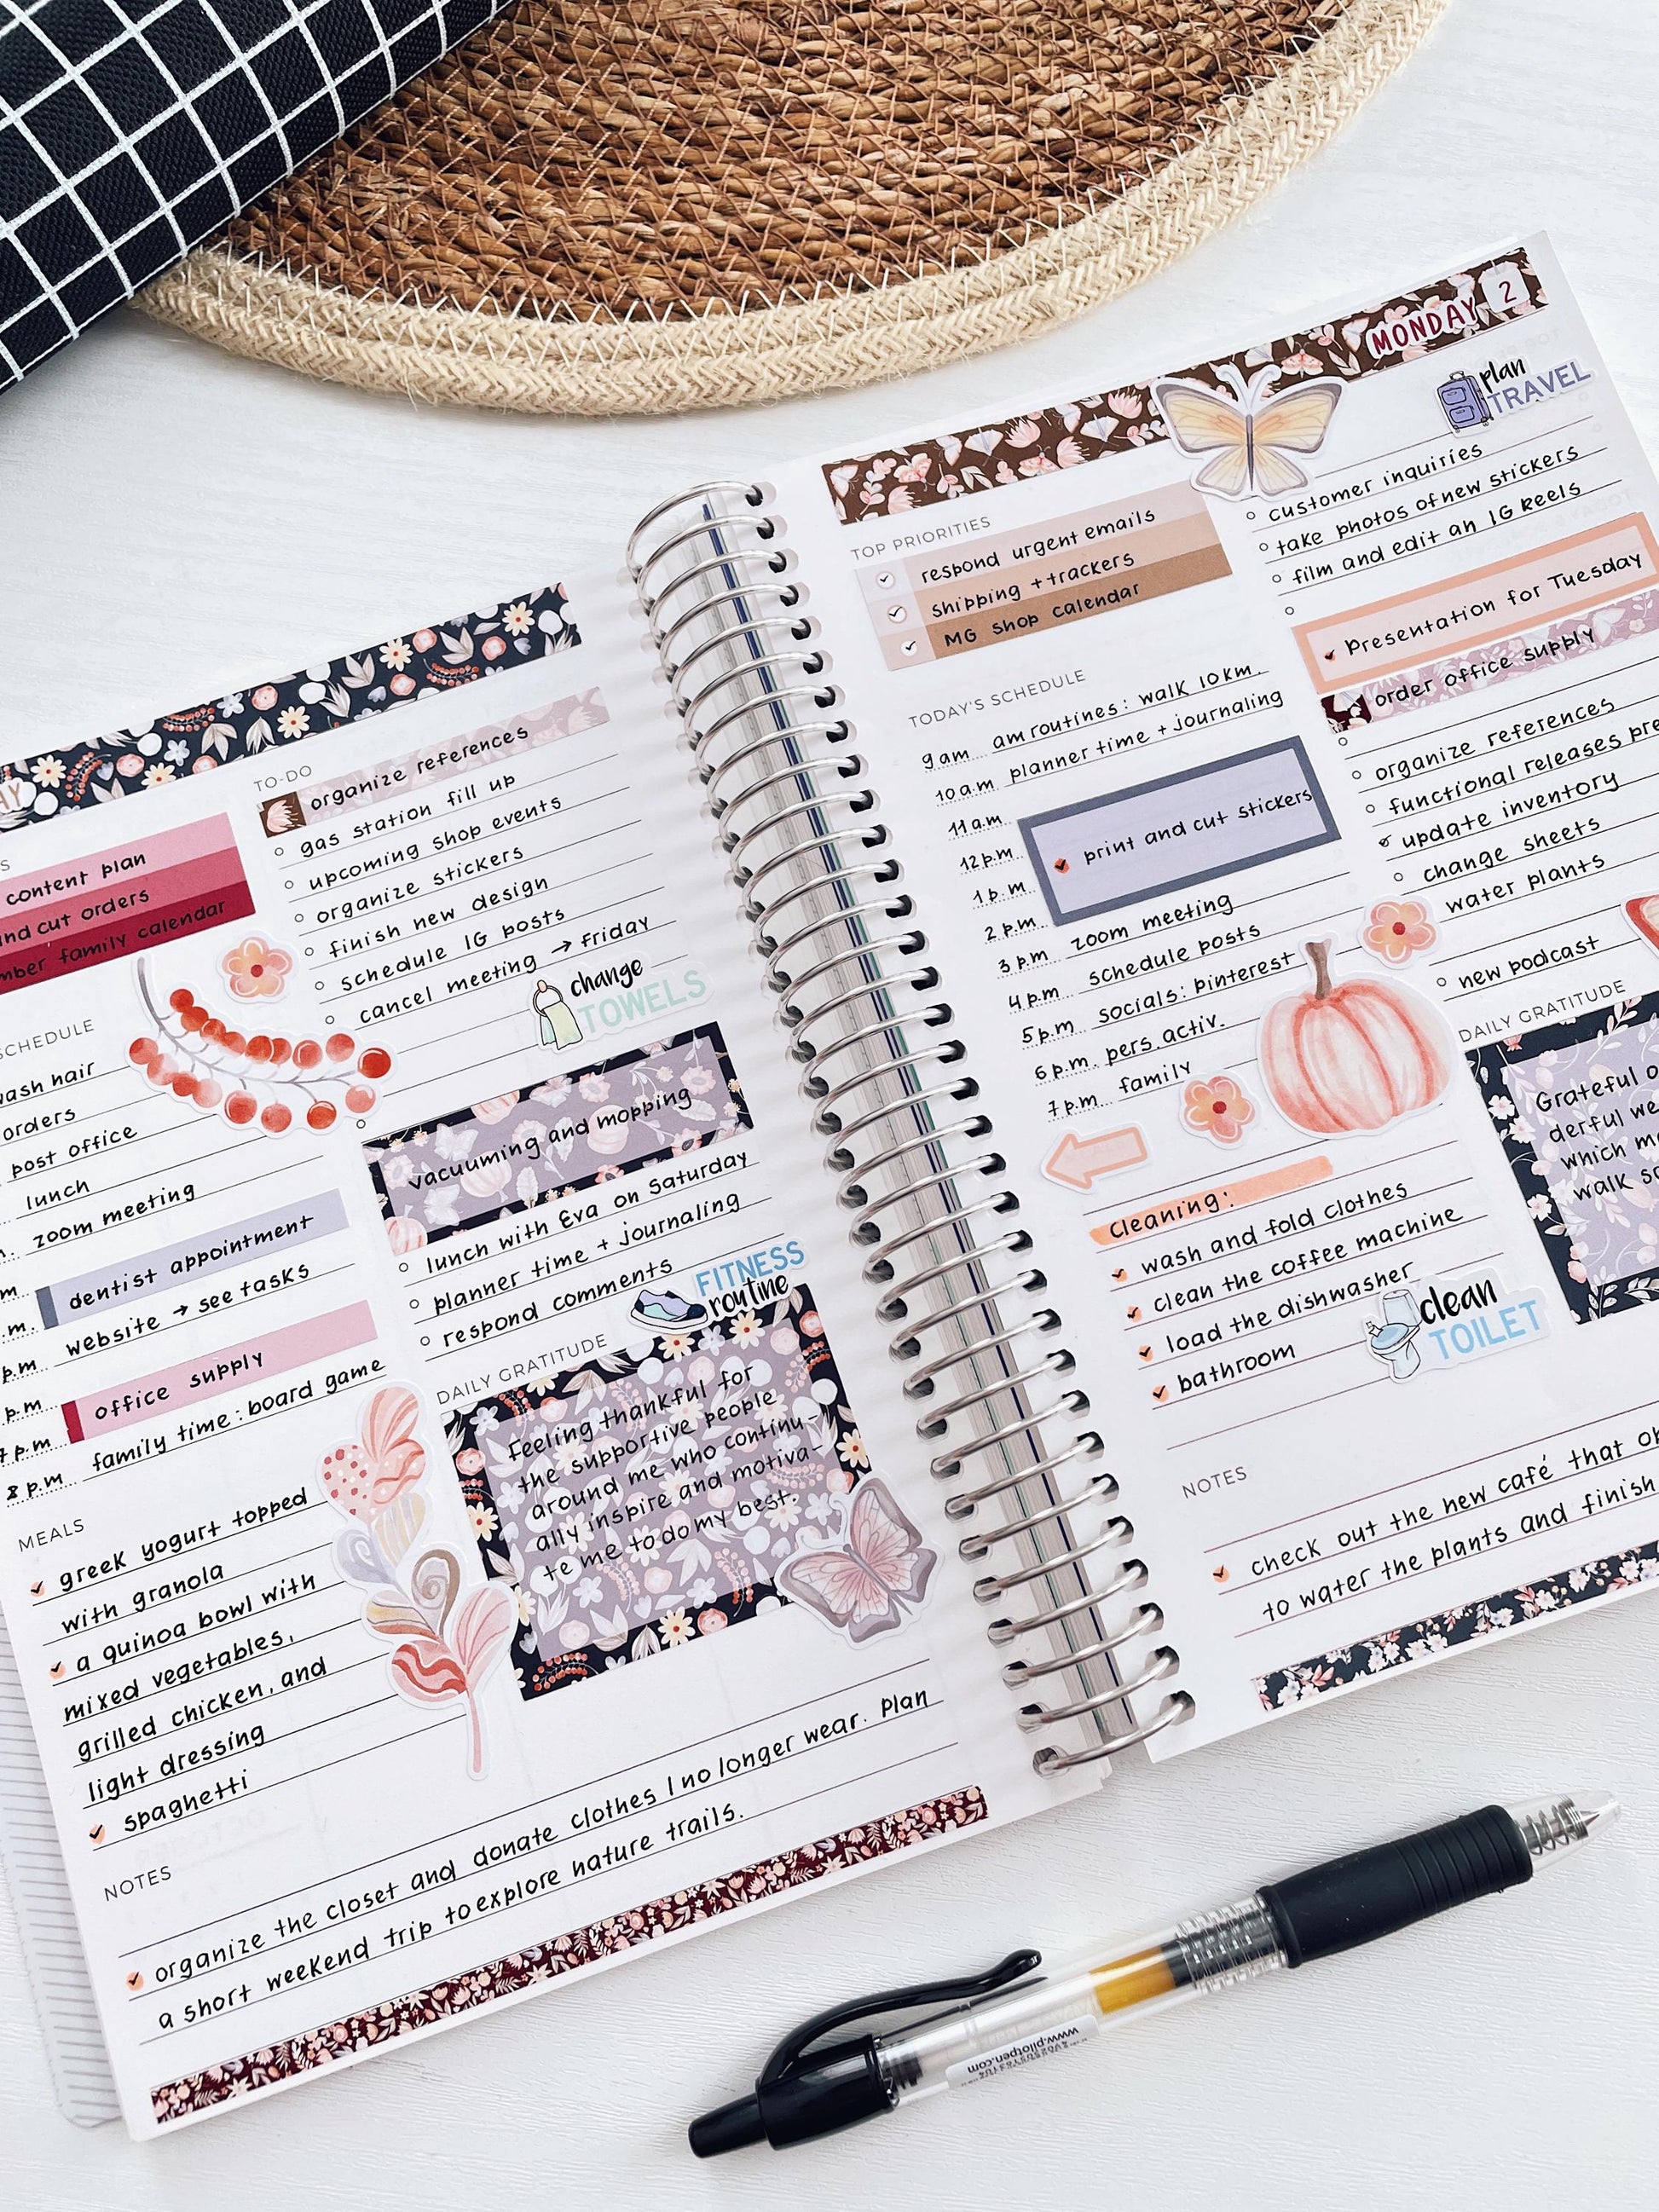 content plan
cut orders
family calendar
SCHEDULE
wash hair
orders
post office
lunch
zoom meeting
dentist appointment
website → see tasks
office supply
family time: board game
p.m
p.m
8 p.m.
MEALS
greek yogurt topped
with granola
a quinoa bowl with
mixed vegetables,
grilled chicken, and
light dressing
spaghetti
TO-DO
organize references
gas station fill up
upcoming shop events
organize stickers
finish new design
schedule IG posts
cancel meeting → Friday
change
TOWELS
vacuuming and mopping
lunch with Eva on Saturday
planner time + journaling
respond comments
FITNESS
routine
DAILY GRATITUDE
Feeling thankful for
the supportive people
around me who continu-
ally inspire and motiva-
te me to do my best.
NOTES
organize the closet and donate clothes I no longer wear. Plan
a short weekend trip to explore nature trails.
MONDAY 2
TOP PRIORITIES
respond urgent emails
shipping + trackers
MG shop calendar
TODAY'S SCHEDULE
9 am am routines: walk 10 km.
10 a.m planner time + journaling
11 a.m.
12 p.m print and cut stickers
1 p.m
2 p.m zoom meeting
3 p.m schedule posts
4 p.m socials: pinterest
5 p.m pers. activ.
6 p.m. family
7 p.m.
cleaning:
wash and fold clothes
clean the coffee machine
load the dishwasher
bathroom
clean
TOILET
plan
TRAVEL
customer inquiries
take photos of new stickers
film and edit an IG Reels
Presentation for Tuesday
order office supply
organize references
functional releases pre
update inventory
change sheets
water plants
new podcast
DAILY GRATITUDE
Grateful
derful we
which m
walk so
NOTES
check out the new café that
to water the plants and finish
www.pilotpen.com